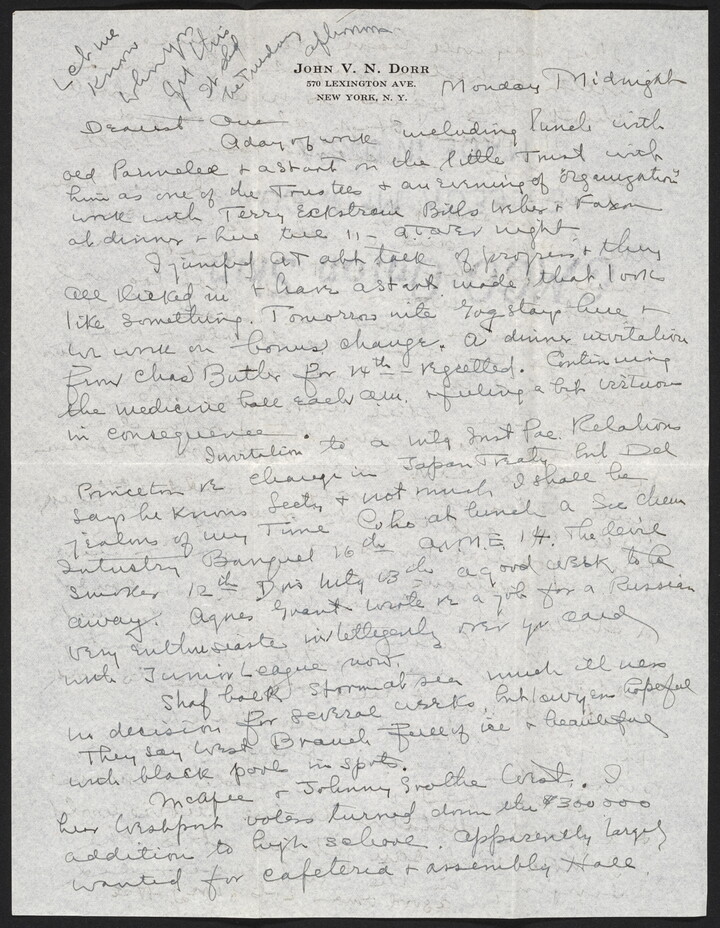 Let me
Know
when you
get this
It shd
be Tuesday
afternoon
JOHN V. N. DORR
570 LEXINGTON AVE.
NEW YORK, N. Y.
Monday Midnight
Dearest One
A day of work including lunch with
old Parmelee + a start on the little Trust with
him as one of the Trustees + an evening of "organization"
work with Terry Eckstrom Bills Weber + Faxon
at dinner + here till 11 - over night
I jumped at abt lack of progress + they
all kicked in + have a start made that looks
like something. Tomorrow nite stays here +
we work on bonus change. A dinner invitation
from Chas Butler for 14th - regretted. Continuing
the medicine ball each a.m. + feeling a bit virtuous
in consequence
Invitation to a mtg Inst Pac. Relations
Princeton re change in Japan Treaty but Del
says he knows Secty + not much I shall be
jealous of my Time at lunch a Soc Chem
Industry Banquet 16th A.I.M.E 14. The
Smoker 12th Drs Mtg 13th a good week to be
away. Agnes Grant wrote re a job for a Russian
very enthusiastic intelligently over yr
with Junior League now.
Shaf back stormy at sea much illness
no decision for several weeks, but lawyers hopeful
They say West Branch full of ice + beautiful
with black pools in spots.
McAfee + Johnny Grothe West. I
hear Westport voters turned down the $300000
addition to high school. Apparently largely
wanted for cafeteria + assembly Hall.